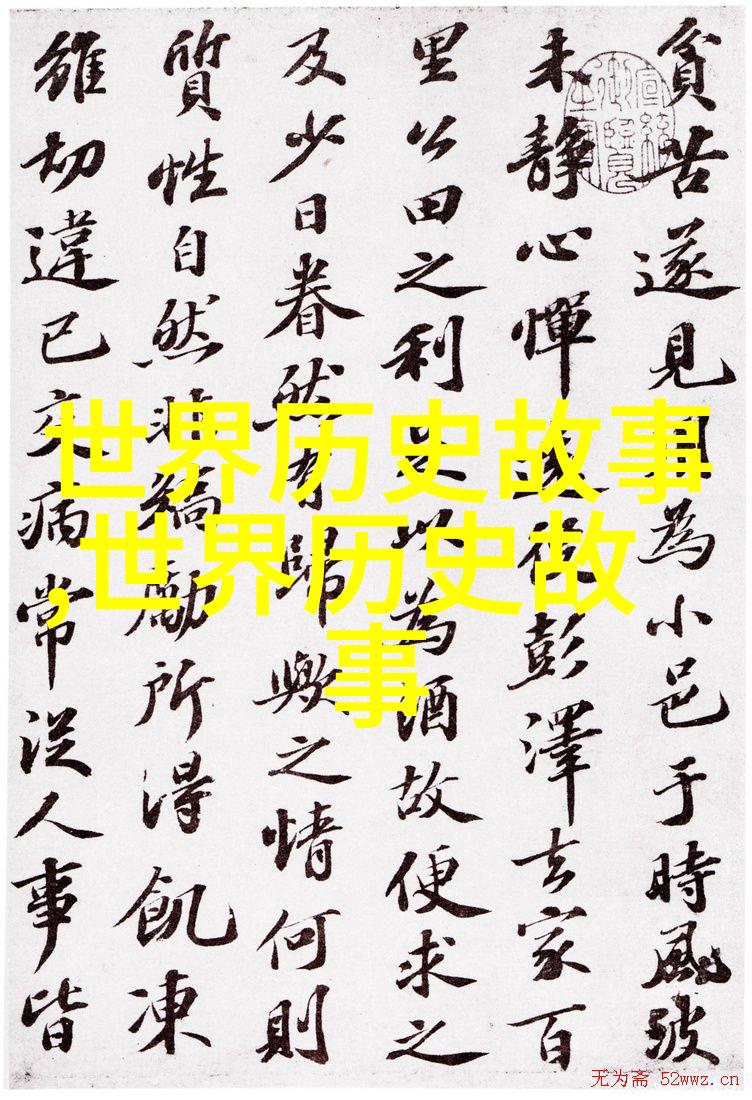 貧苦遂見用為小邑于時風波
未靜心憚遠役彭澤去家百
里公田之利足以為酒故便求之
及少日眷然有歸歟之情何則
質性自然非矯勵所得飢凍
雖切違己交病常從人事皆
世界历史故事
,世界历史故
事
无为斋 52wwz.cn